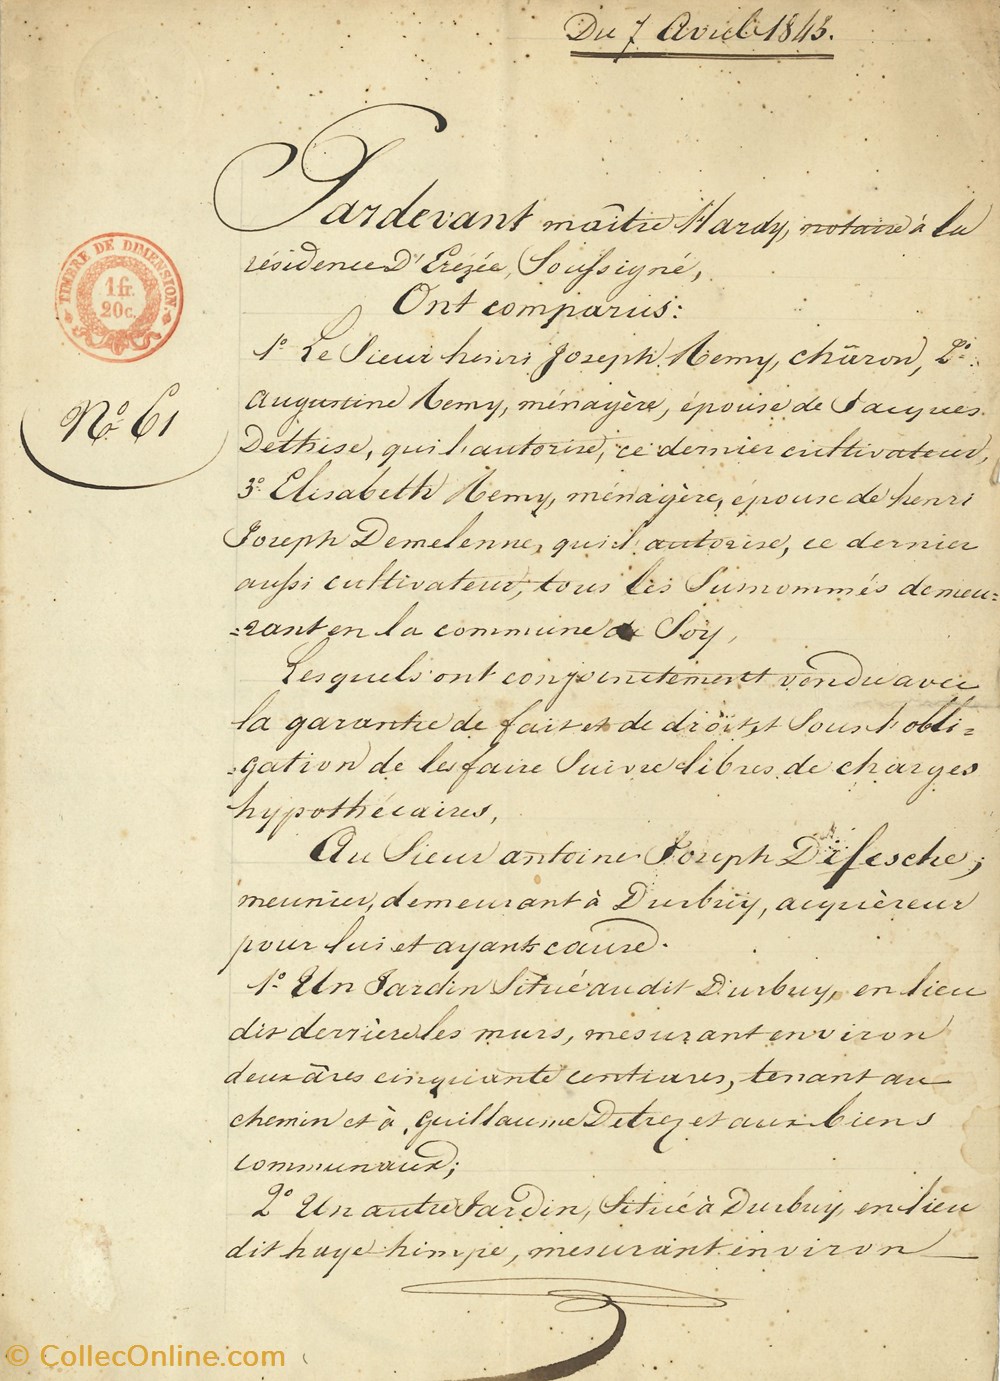 Du 7 Avril 1843.
Pardevant maître Hardy, notaire à la
résidence D'Erezée, Soussigné,
Ont comparus:
TIMBRE DE DIMENSION
1 fr.
20 c.
N.º 61
1º Le Sieur henri Joseph Remy, châron, 2º
Augustine Remy, ménagère, épouse de Jacques
Dethise, qui l'autorise, ce dernier cultivateur,
3º Elisabeth Remy, ménagère, épouse de henri
Joseph Demelenne, qui l'autorise, ce dernier
aussi cultivateur, tous les Surnommés demeu=
=rant en la commune de Soy,
Lesquels ont conjointement vendu avec
la garantie de fait et de droit, et Sous l'obli=
=gation de les faire Suivre libres de charges
hypothécaires,
Au Sieur antoine Joseph Difesche,
meunier, demeurant à Durbuÿ, acquèreur
pour lui et ayants cause.
1º Un Jardin Situé audit Durbuy, en lieu
dit derrière les murs, mesurant environ
deux âres cinquante centiares, tenant au
chemin et à guillaume Detrez et aux biens
communaux;
2º Un autre Jardin, Situé à Durbuy, en lieu
dit haye himpe, mesurant environ
© CollecOnline.com